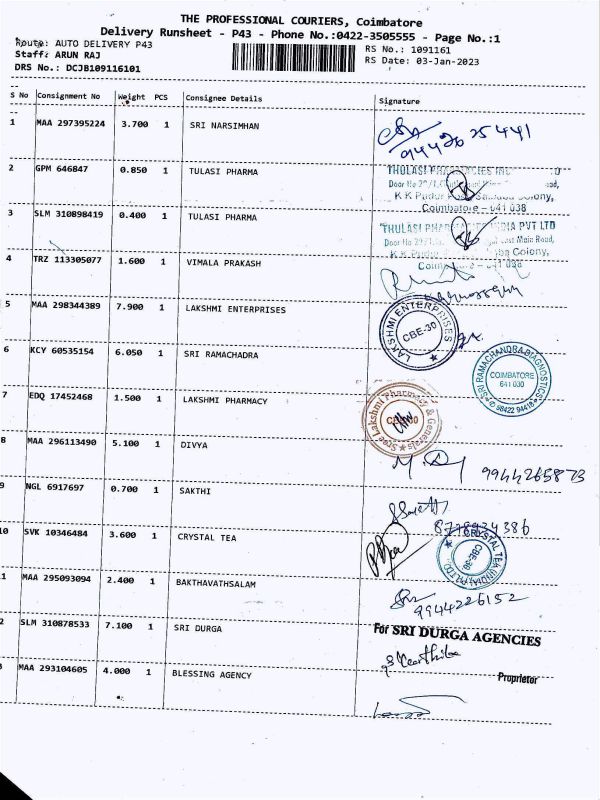 THE PROFESSIONAL COURIERS, Coimbatore
Delivery Runsheet - P43 - Phone No.:0422-3505555 - Page No.:1
Route: AUTO DELIVERY P43
Staff: ARUN RAJ
DRS No.: DCJB109116101
RS No.: 1091161
RS Date: 03-Jan-2023
S No Consignment No Weight PCS Consignee Details Signature
1 MAA 297395224 3.700 1 SRI NARSIMHAN
2 GPM 646847 0.850 1 TULASI PHARMA
THULASI
Coimbatore - 641 038
3 SLM 310898419 0.400 1 TULASI PHARMA
THULASI PHARMACIES INDIA PVT LTD
4 TRZ 113305077 1.600 1 VIMALA PRAKASH
5 MAA 298344389 7.900 1 LAKSHMI ENTERPRISES
LAKSHMI ENTERPRISES
CBE-30
6 KCY 60535154 6.050 1 SRI RAMACHADRA
SRI RAMACHANDRA DIAGNOSTICS
COIMBATORE
641 030
7 EDQ 17452468 1.500 1 LAKSHMI PHARMACY
Sree Lakshmi Pharmacy & Generals
8 MAA 296113490 5.100 1 DIVYA
9944265873
9 NGL 6917697 0.700 1 SAKTHI
10 SVK 10346484 3.600 1 CRYSTAL TEA
CRYSTAL TEA (INDIA) PVT LTD
CBE-30
1 MAA 295093094 2.400 1 BAKTHAVATHSALAM
9944226152
2 SLM 310878533 7.100 1 SRI DURGA
For SRI DURGA AGENCIES
Proprietor
3 MAA 293104605 4.000 1 BLESSING AGENCY